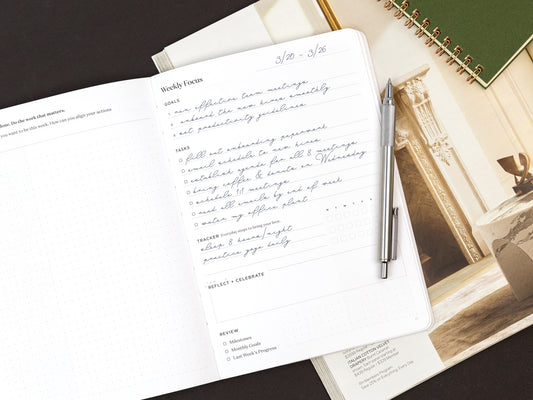 done. Do the work that matters.
you want to be this week. How can you align your actions
3/20 - 3/26
Weekly Focus
GOALS
run effective team meetings
onboard the new hires smoothly
set productivity guidelines
TASKS
fill out onboarding paperwork
email schedule to new hires
establish agenda for all 8 meetings
bring coffee & donuts on Wednesday
schedule 1:1 meetings
read all emails by end of week
water my office plant
TRACKER Everyday steps to being your best.
sleep 8 hours/night
practice yoga daily
REFLECT + CELEBRATE
REVIEW
Milestones
Monthly Goals
Last Week's Progress
ITALIAN COTTON VELVET
DRAPERY